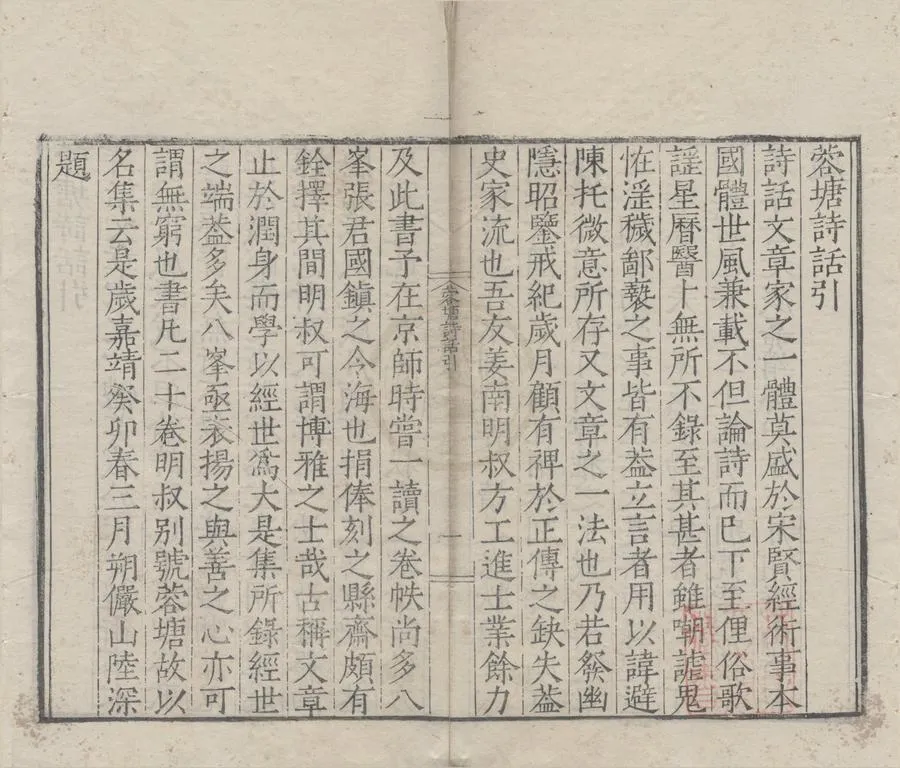 蓉塘詩話引
詩話文章家之一體莫盛於宋賢經術事本
國體世風兼載不但論詩而已下至俚俗歌
謡星曆醫卜無所不錄至其甚者雖嘲謔鬼
恠淫穢鄙䙝之事皆有葢立言者用以諱避
陳托微意所存又文章之一法也乃若發幽
隱昭鑒戒紀歲月顧有裨於正傳之缺失葢
史家流也吾友姜南明叔方工進士業餘力
蓉塘詩話引
一
及此書予在京師時嘗一讀之卷帙尚多八
峯張君國鎮之令海也捐俸刻之縣齋頗有
銓擇其間明叔可謂博雅之士哉古稱文章
止於潤身而學以經世爲大是集所錄經世
之端葢多矣八峯亟表揚之與善之心亦可
謂無窮也書凡二十卷明叔別號蓉塘故以
名集云是歲嘉靖癸卯春三月朔儼山陸深
題